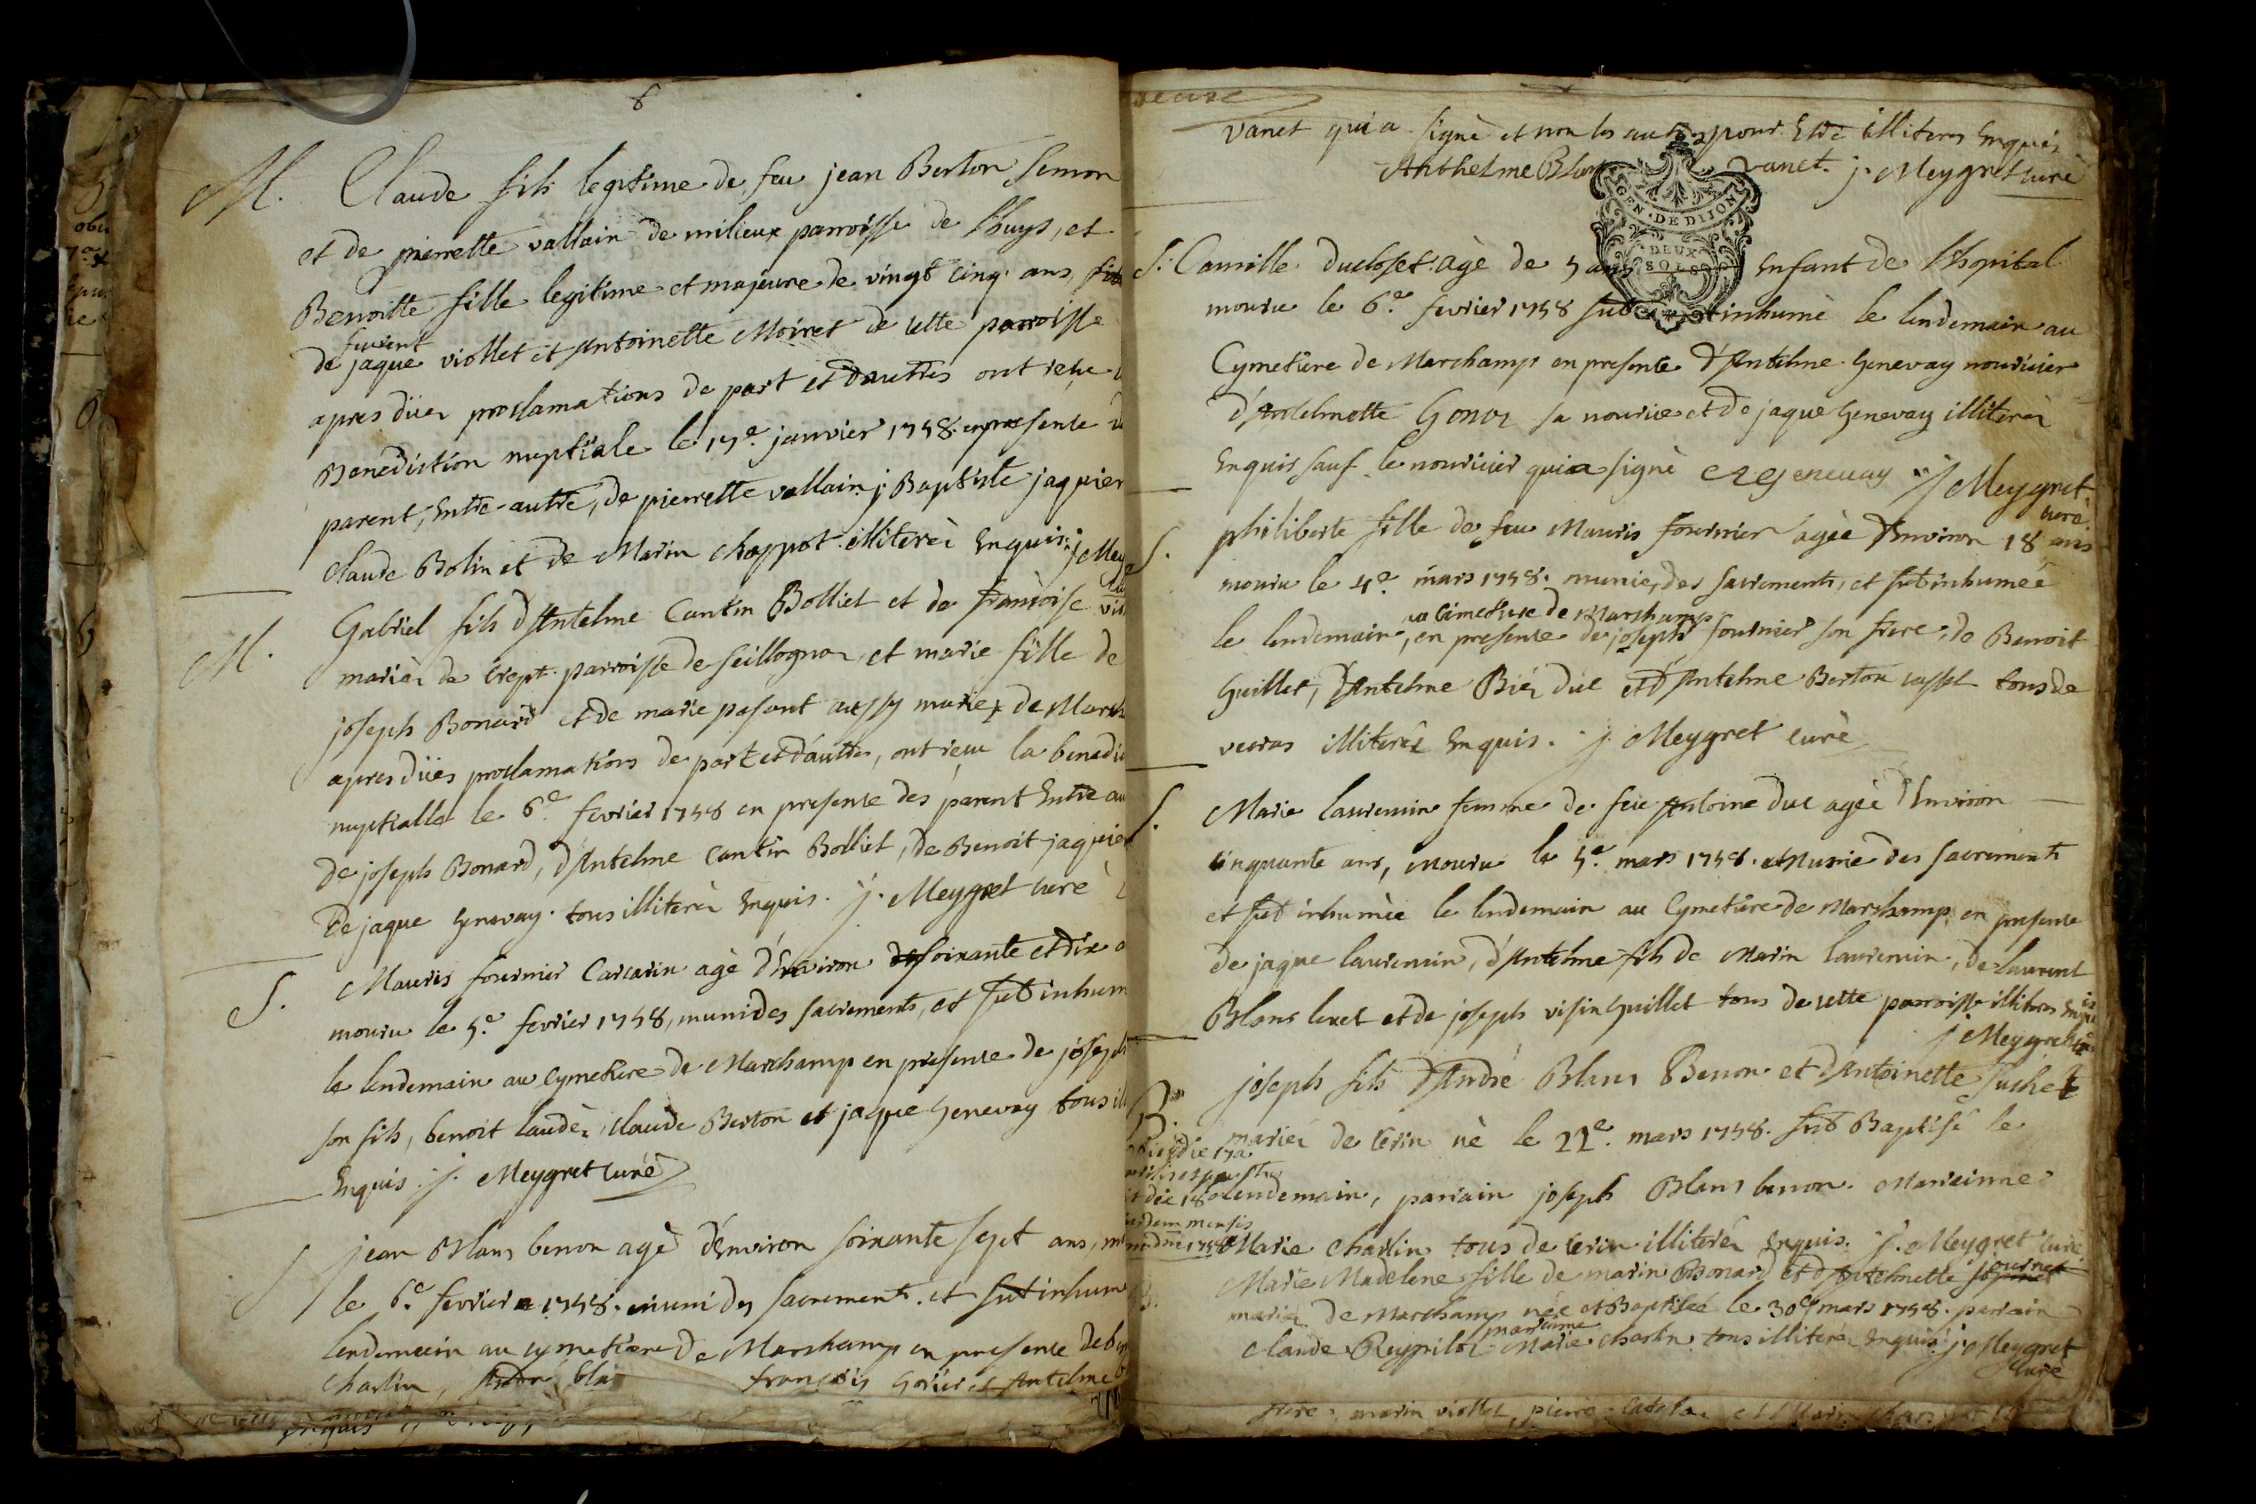 6
M. Claude fils legitime de feu jean Berton Semon
et de pierrette vallain de milieux parroisse de Lhuys, et
Benoitte fille legitime et majeure de vingt cinq ans
furent
de jaque viollet et Antoinette Moiret de cette parroisse
apres dües proclamations de part et d'autres ont reçu
Benediction nuptiale le 17e. janvier 1758. en presence
parent, Entre autre, de pierrette vallain j Baptiste jaquier
claude Bolin et de Marin Chappot illiterés Enquis. j Mey
M. Gabriel fils d'Antelme Cantin Bolliet et de françoise
mariés de Crept parroisse de Seillognas, et marie fille de
joseph Bonard et de marie pasant aussy mariez de March
apres dües proclamations de part et d'autres, ont reçu la benedi
nuptialle le 6e fevrier 1758 en presence des parent Entre au
de joseph Bonard, d'Antelme Cantin Bolliet, de Benoit jaquier
de jaque Genevay tous illiterés Enquis. j. Meygret curé
S. Mauris fournier Carcarin agé d'Environ soixante et dix
mouru le 5e fevrier 1758, muni des sacrements, et fut inhum
le lendemain au cymetiere de Marchamp en presence de joseph
son fils, benoit laudéz, claude Berton et jaque Genevay tous ill
Enquis. j. Meygret curé
S jean Blanc benon agé d'Environ soixante sept ans, m
le 6e fevrier 1758. muni des sacrements. et fut inhum
lendemain au cymetiere de Marchamp en presence de
Charlin, André bla françois Goriez et Antelme
Enquis
vanet qui a signé et non les autres pour Etre illiterés Enquis
Anthelme Blan vanet. j. Meygret curé
GEN. DE DIJON
DEUX SOLS
S. Camille ducloset agé de 5 ans Enfant de Lhopital
mouru le 6e. fevrier 1758 fut inhumé le lendemain au
Cymetiere de Marchamp en presence d'Antelme Genevay nouricier
d'Antelmette Gonoz sa nourice et de jaque Genevay illiterés
Enquis sauf le nouricier qui a signé Genevay j Meygret
curé.
S. philiberte fille de feu Mauris fournier agée d'Environ 18 ans
mouru le 4e. mars 1758. munie, des sacrements, et fut inhumée
au cimetiere de Marchamp
le lendemain, en presence de joseph fournier son frere, de Benoit
Guillet, d'Antelme Biéz duc et d'Antelme Berton tous de
veiras illiterés Enquis. j. Meygret curé
S. Marie laurencin femme de feu Antoine duc agée d'Environ
cinquante ans, mouru le 5e. mars 1758. Munie des sacrements
et fut inhumée le lendemain au Cymetiere de Marchamp en presence
de jaque laurencin, d'Antelme fils de Marin laurencin, de laurent
Blanc lexet et de joseph visin Guillet tous de cette parroisse illiterés Enquis
j Meygret curé
B. joseph fils d'André Blanc Benon et d'Antoinette fuchet
mariéz de Cerin né le 22e. mars 1758. fut Baptisé le
lendemain, parrain joseph Blanc benon. Marreinne
Marie Charlin tous de Cerin illiterés Enquis. j. Meygret curé
B. Marie Madelene fille de marin Bonard et d'Antelmette
mariéz de Marchamp née et Baptisée le 30e mars 1758. parrain
marreinne
claude Reypilol Marie charlin tous illiterés Enquis. j. Meygret
curé
marin viollet, pierre